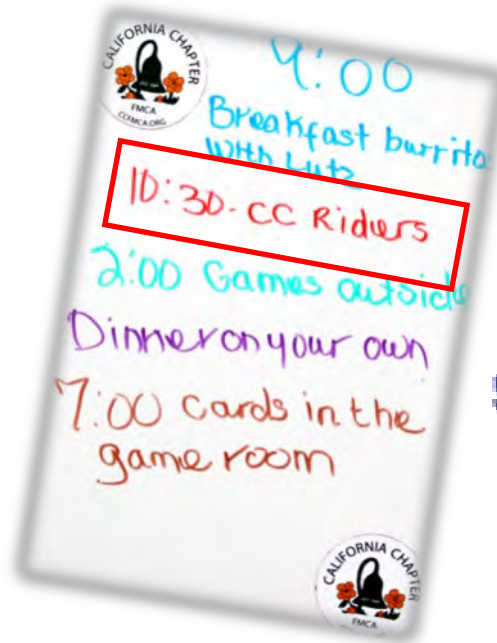 CALIFORNIA CHAPTER
FMCA
CCFMCA.ORG
9:00
Breakfast burrito
With Lutz
10:30-CC Riders
2:00 Games outside
Dinner on your own
7:00 cards in the
game room
CALIFORNIA CHAPTER
FMCA